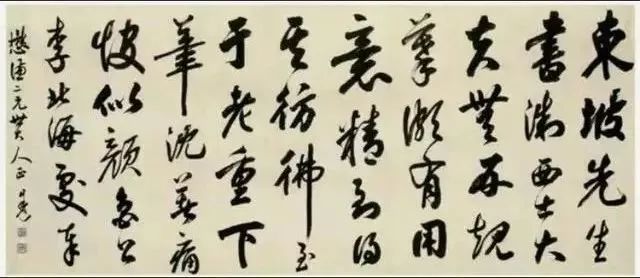 東坡先生
書浙西士大
夫無不規
摹頗有用
意精到得
其彷彿至
于老重下
筆沈著痛
快似顏魯公
李北海處
二兄大人正